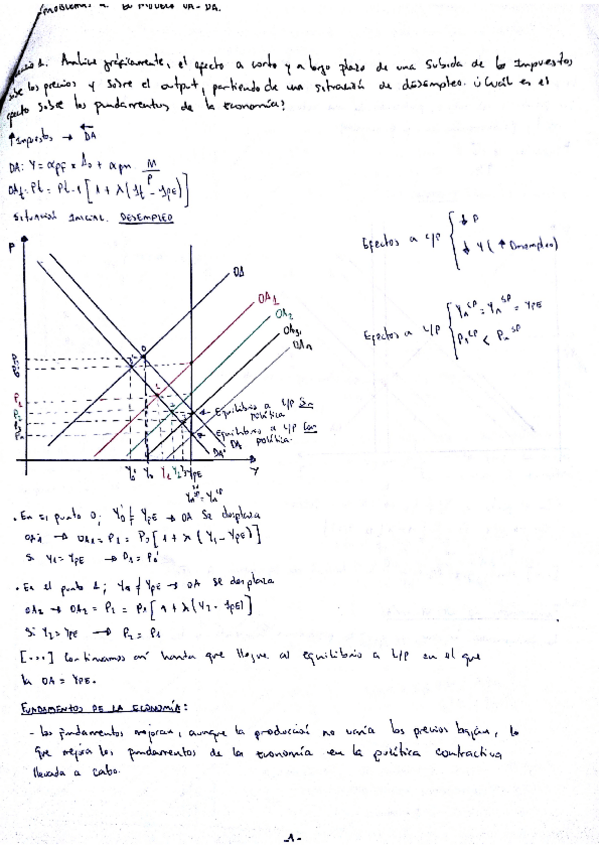 PROBLEMAS EL MODELO OA-DA.
Analice gráficamente, el efecto a corto y a largo plazo de una subida de los impuestos
sobre los precios y sobre el output, partiendo de una situación de desempleo. ¿Cuál es el
efecto sobre los fundamentos de la economía?
↑Impuestos → DA
DA: Y = αPF × A0 + αPM M/P
OAt: Pt = Pt-1 [1 + λ(Yt - YPE)]
SITUACIÓN INICIAL: DESEMPLEO
Efectos a C/P { ↓ P
↓ Y (↑ Desempleo)
Efectos a L/P { Yn^CP = Yn^SP = YPE
Pn^CP < Pn^SP
P
OA
OA1
OA2
OA3
OAn
Equilibrio a L/P Sin política
Equilibrio a L/P Con política.
DA
DA'
Y0' Y0 Y1 Y2 Y3 YPE Y
· En el punto 0; Y0' ≠ YPE → OA se desplaza
OA1 → OA1 = P1 = P0 [1 + λ (Y1 - YPE)]
Si Y1 = YPE → P1 = P0'
· En el punto 1; Y1 ≠ YPE → OA se desplaza
OA2 → OA2 = P2 = P1 [1 + λ(Y2 - YPE)]
Si Y2 = YPE → P2 = P1
[...] Continuamos así hasta que llegue al equilibrio a L/P en el que
la OA = YPE.
FUNDAMENTOS DE LA ECONOMÍA:
- Los fundamentos mejoran, aunque la producción no varía los precios bajan, lo
que mejora los fundamentos de la economía en la política contractiva
llevada a cabo.
-1-